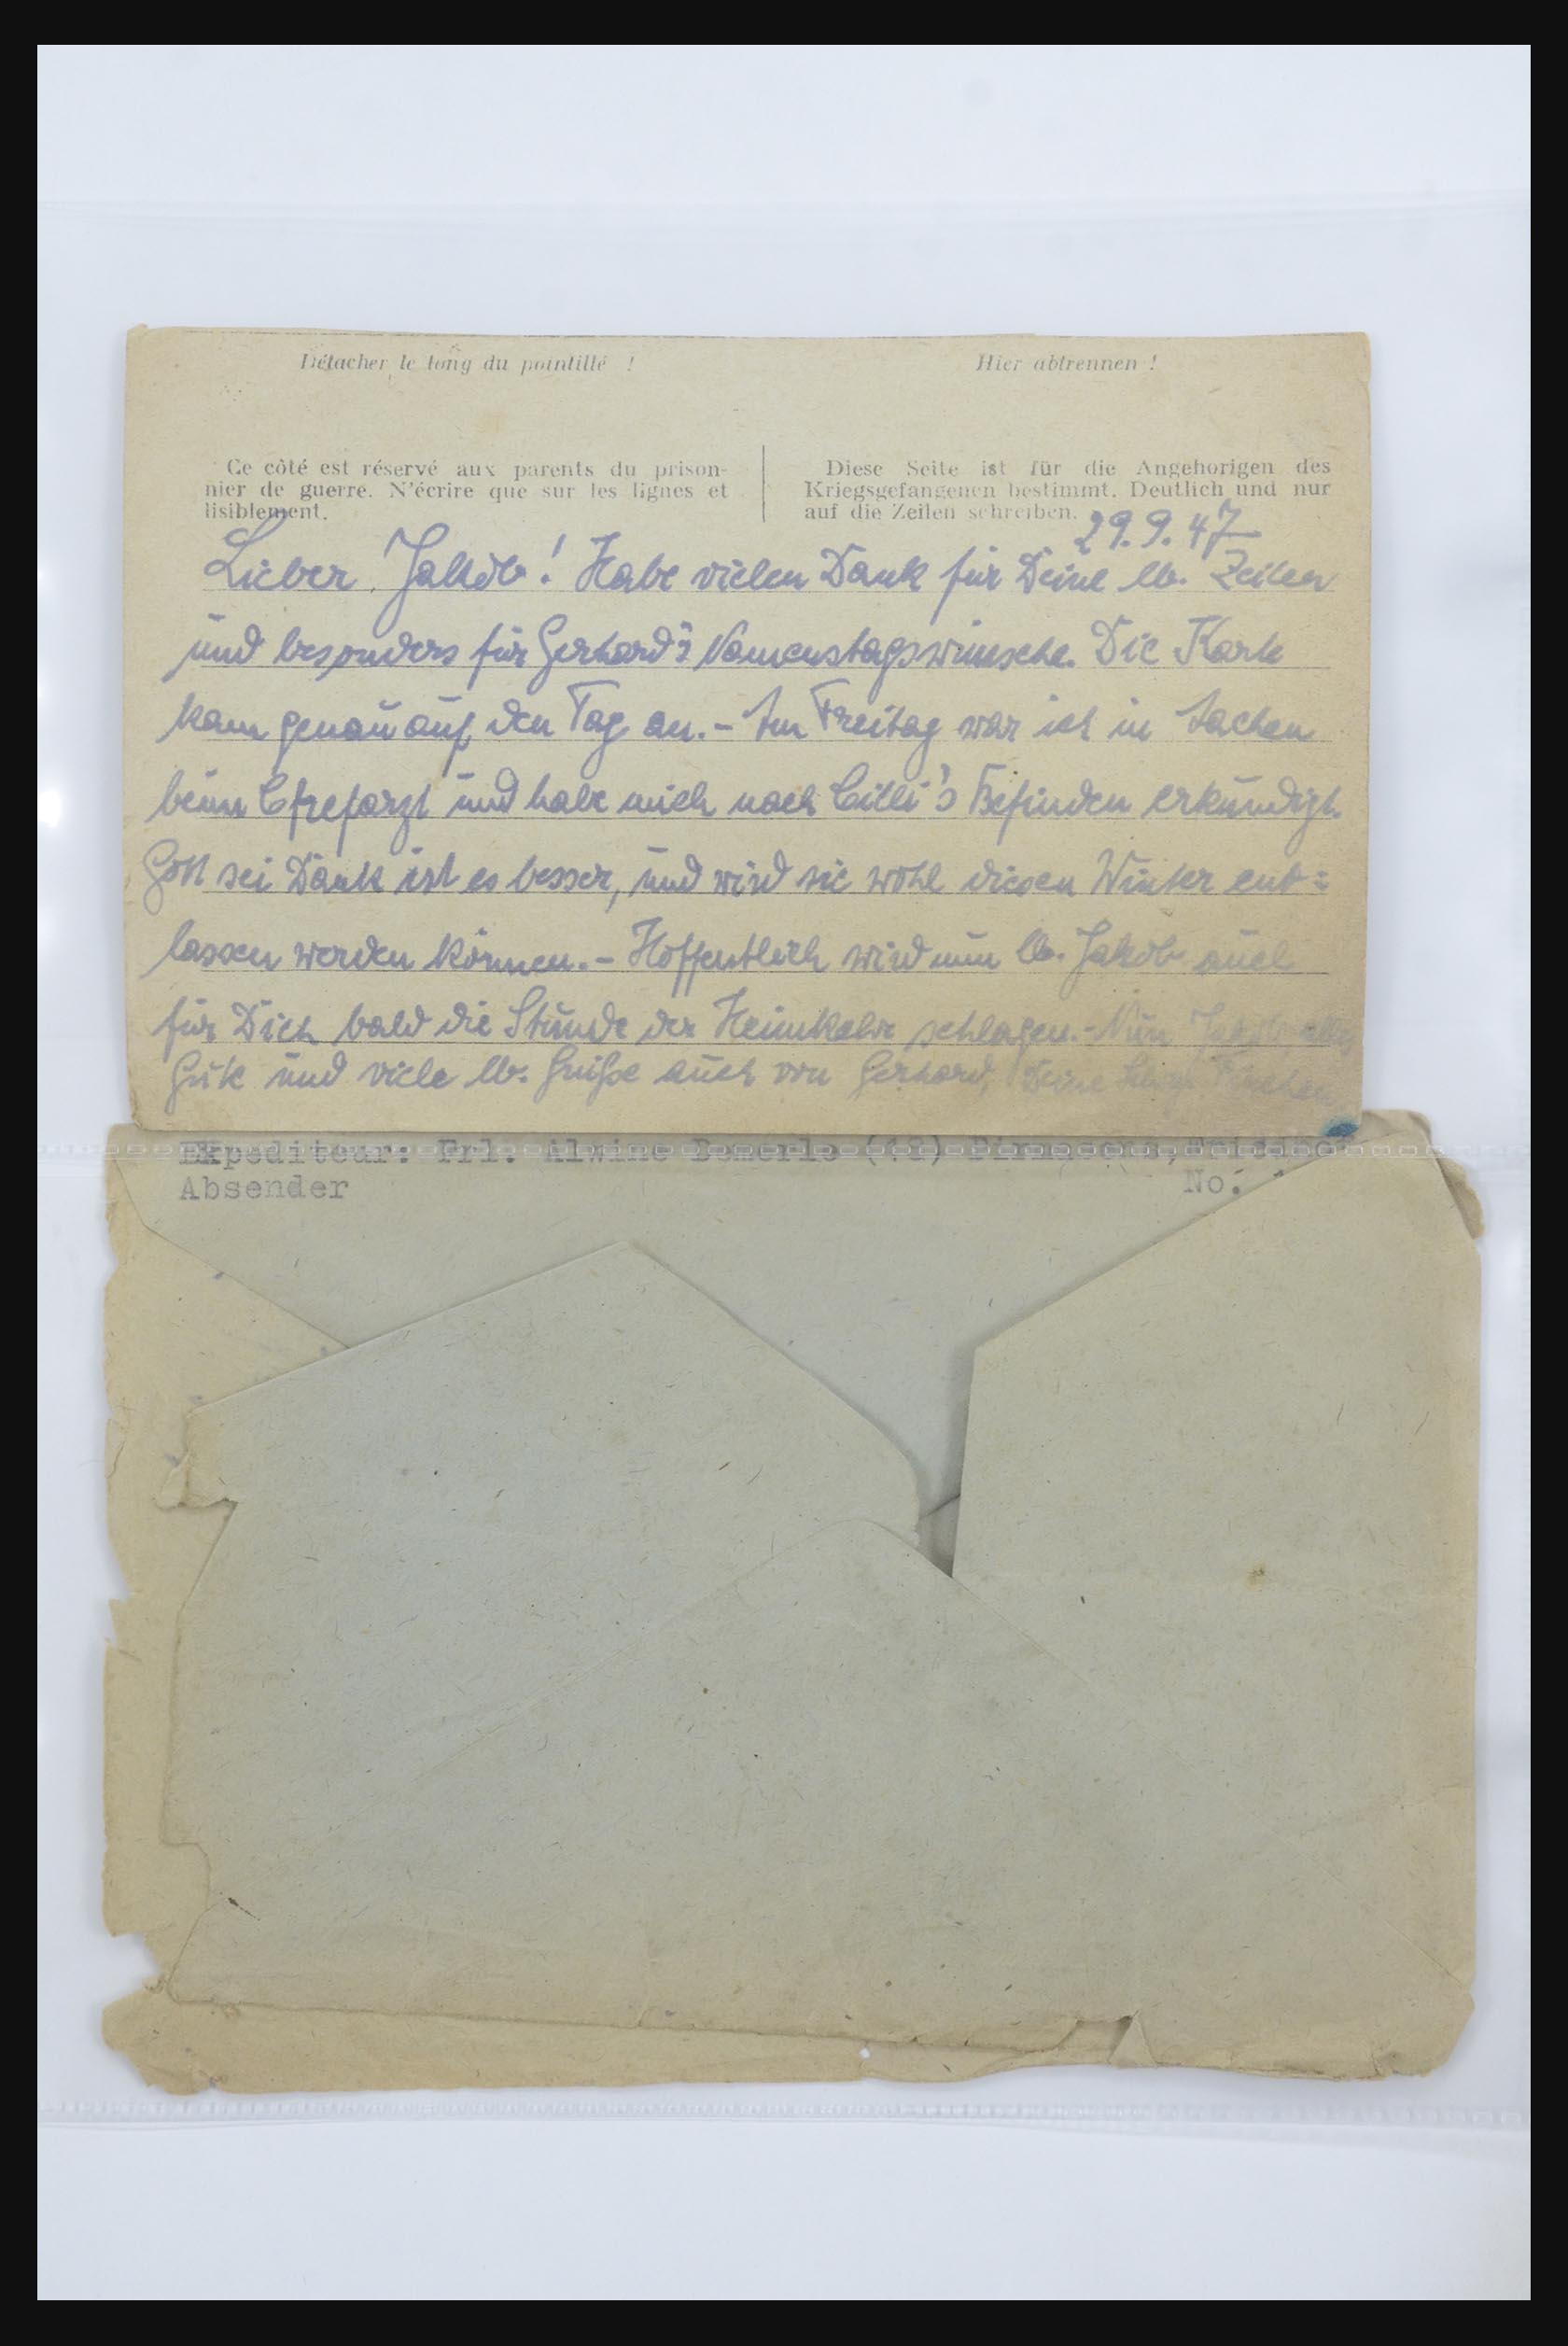 Détacher le long du pointillé !
Hier abtrennen !
Ce côté est réservé aux parents du prison-
nier de guerre. N'écrire que sur les lignes et
lisiblement.
Diese Seite ist für die Angehorigen des
Kriegsgefangenen bestimmt. Deutlich und nur
auf die Zeilen schreiben.
29.9.47
Lieber Jakob! Habe vielen Dank für Deine lb. Zeilen
und besonders für Gerhard's Namenstagswünsche. Die Karte
kam genau auf den Tag an. - Am Freitag war ich in Sachen
beim und habe mich nach Cilli's Befinden erkundigt.
Gott sei Dank ist es besser, und wird sie wohl diesen Winter ent=
lassen werden können. - Hoffentlich wird nun lb. Jakob auch
für Dich bald die Stunde der Heimkehr schlagen. - Nun Jakob alles
Gute und viele lb. Grüße auch von Gerhard, Deine
Expediteur: Frl. Alwine (18) Pirmasens,
Absender
No: